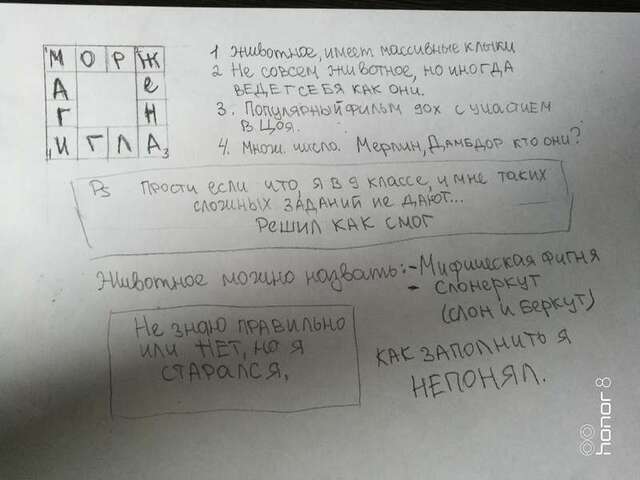 МОРЖ
А Е
Г Н
ИГЛА
1 Животное, имеет массивные клыки
2 Не совсем животное, но иногда
ведет себя как они.
3. Популярный фильм 90х с участием
В Цоя.
4. Множ. число. Мерлин, Дамбдор кто они?
Ps Прости если что, я в 9 классе, и мне таких
сложных заданий не дают...
Решил как смог
Животное можно назвать: - Мифическая фигня
- Слонеркут
(слон и беркут)
Не знаю правильно
или нет, но я
старался,
Как заполнить я
непонял.
honor 8